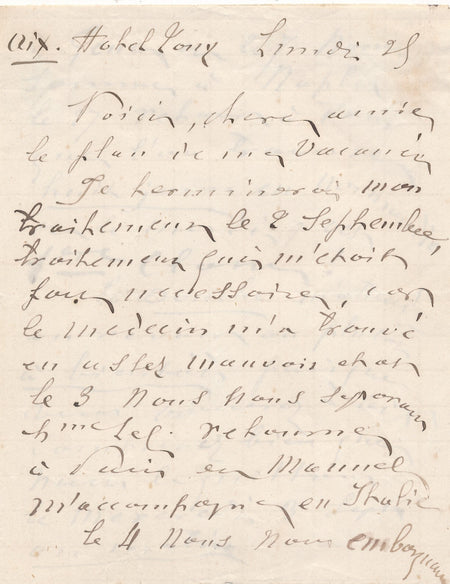 Aix. Hotel Lundi 25
Voici, chere amie
le plan de mes Vacances
Je terminerai mon
traitement le 2 Septembre,
traitement qui m'etoit
fort necessaire, car
le medecin m'a trouvé
en assez mauvois etat
le 3 Nous Nous separons
Mme Leg. retourne
à Paris et Manuel
m'accompagne en Italie
le 4 Nous Nous embarquons